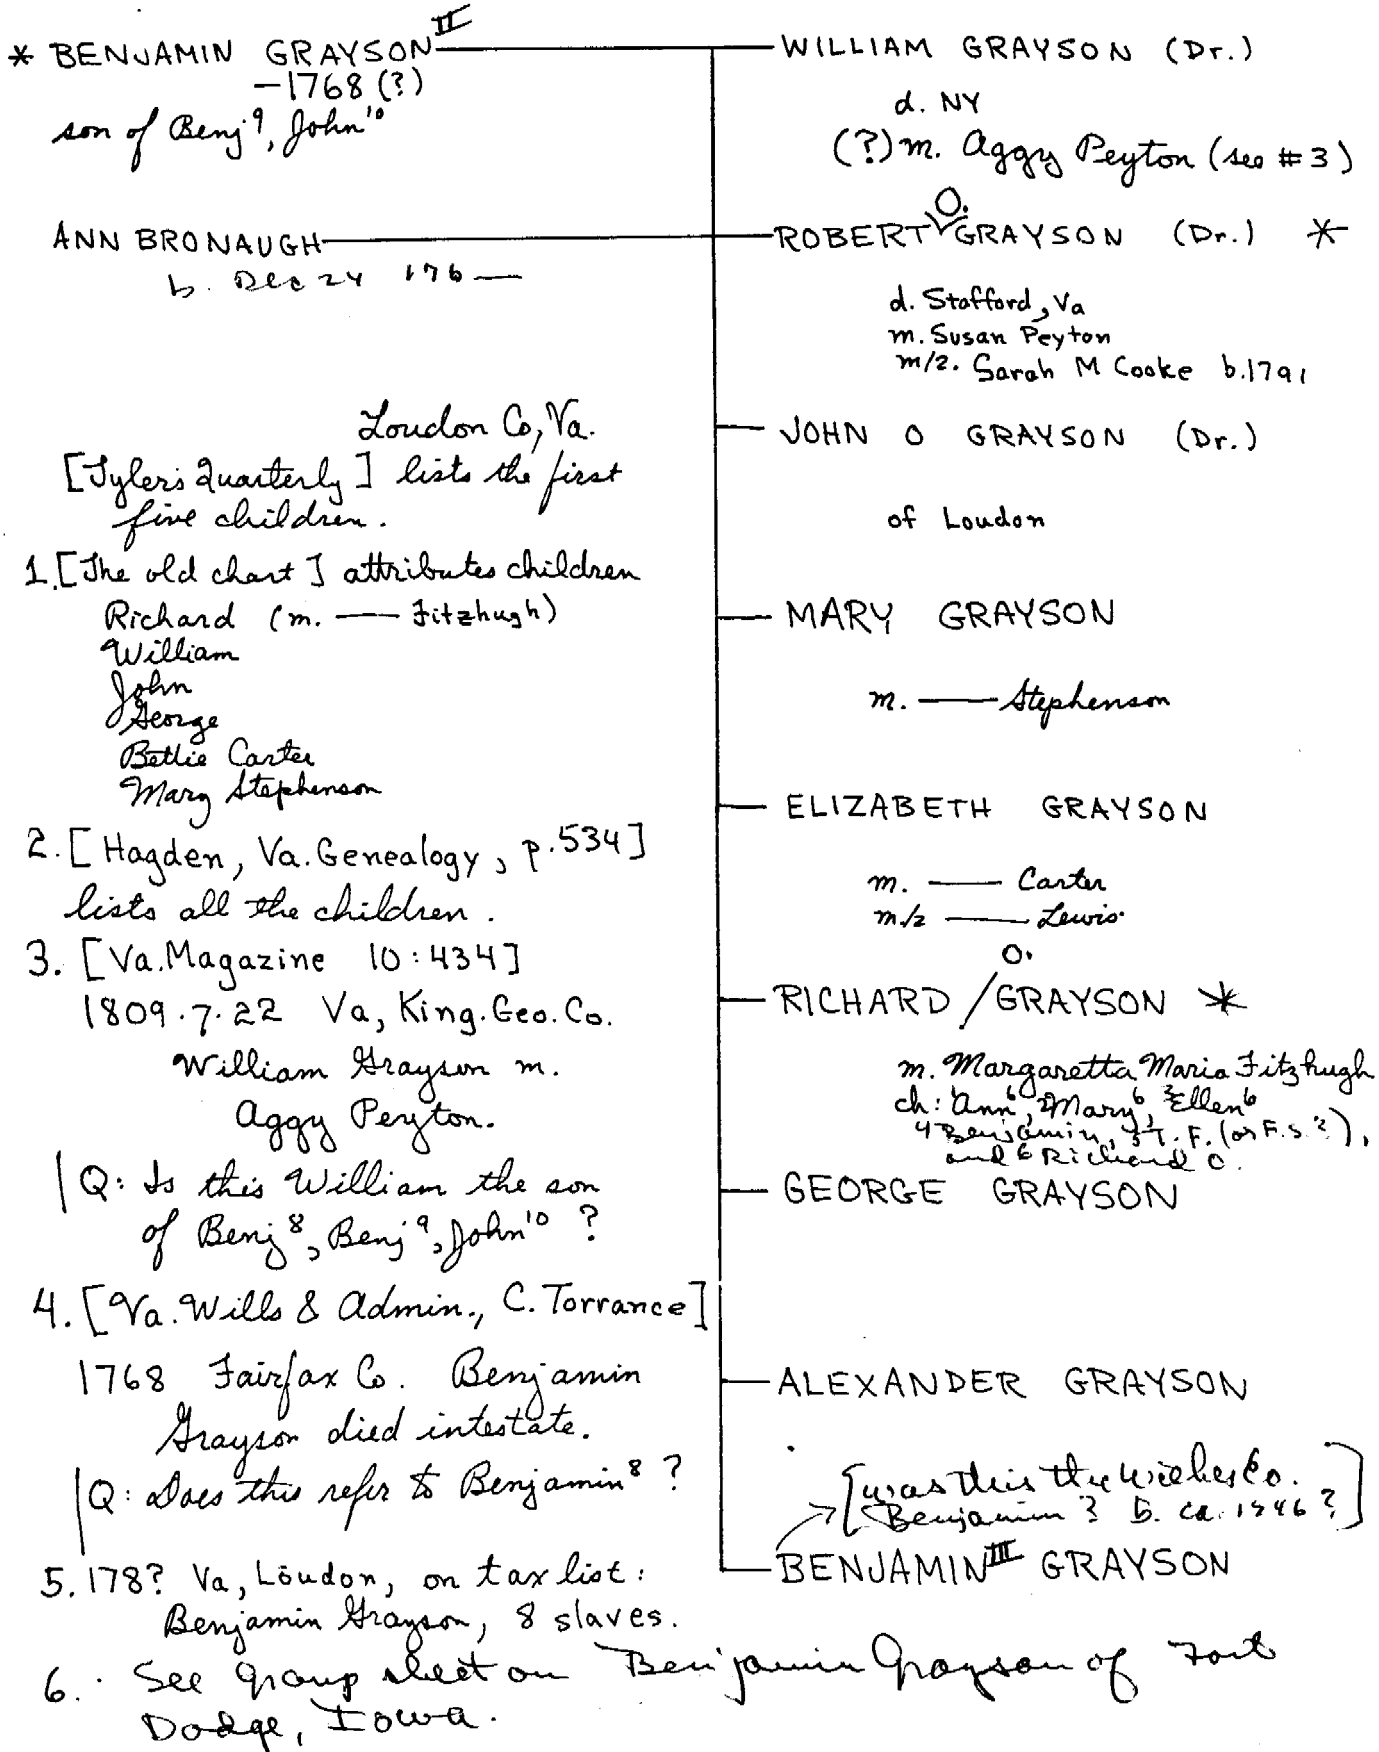 * BENJAMIN GRAYSON II
—1768 (?)
son of Benj⁹, John¹⁰
ANN BRONAUGH
b. Dec 24 176—
Loudon Co, Va.
[Tyler's Quarterly] lists the first
five children.
1. [The old chart] attributes children
Richard (m. — Fitzhugh)
William
John
George
Bettie Carter
Mary Stephenson
2. [Hagden, Va. Genealogy, p. 534]
lists all the children.
3. [Va. Magazine 10:434]
1809.7.22 Va, King. Geo. Co.
William Grayson m.
Aggy Peyton.
Q: Is this William the son
of Benj⁸, Benj⁹, John¹⁰ ?
4. [Va. Wills & Admin., C. Torrance]
1768 Fairfax Co. Benjamin
Grayson died intestate.
Q: Does this refer to Benjamin⁸ ?
5. 178? Va, Loudon, on tax list:
Benjamin Grayson, 8 slaves.
6. See group sheet on Benjamin Grayson of Fort
Dodge, Iowa.
WILLIAM GRAYSON (Dr.)
d. NY
(?) m. Aggy Peyton (see #3)
ROBERT O. GRAYSON (Dr.) *
d. Stafford, Va
m. Susan Peyton
m/2. Sarah M Cooke b. 1791
JOHN O GRAYSON (Dr.)
of Loudon
MARY GRAYSON
m. — Stephenson
ELIZABETH GRAYSON
m. — Carter
m/2 — Lewis
RICHARD O. GRAYSON *
m. Margaretta Maria Fitzhugh
ch: ¹Ann⁶, ²Mary⁶, ³Ellen⁶
4 Benjamin, 5 T. F. (or F.S.?),
and 6 Richard O.
GEORGE GRAYSON
ALEXANDER GRAYSON
[was this the Wilkes Co.
Benjamin? b. ca. 1746?]
BENJAMIN III GRAYSON